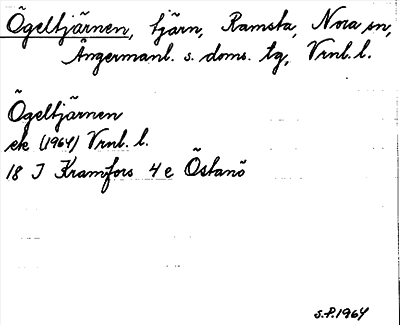 Ögeltjärnen, tjärn, Ramsta, Nora sn,
Ångermanl. s. doms. tg, Vrnl. l.
Ögeltjärnen
ek (1964) Vrnl. l.
18 I Kramfors 4 e Östanö
S.P. 1964